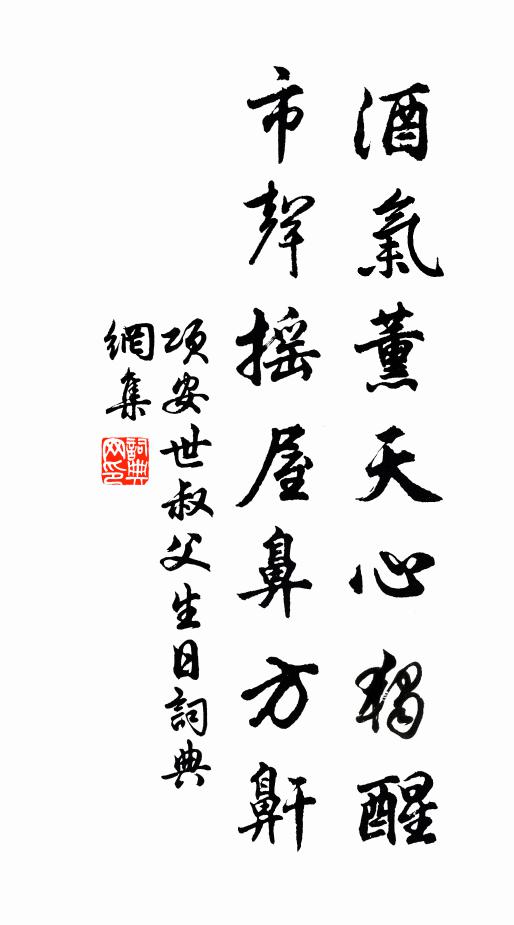 酒氣薰天心獨醒
市聲搖屋鼻方鼾
項安世叔父生日詞典
網集
詞典網印